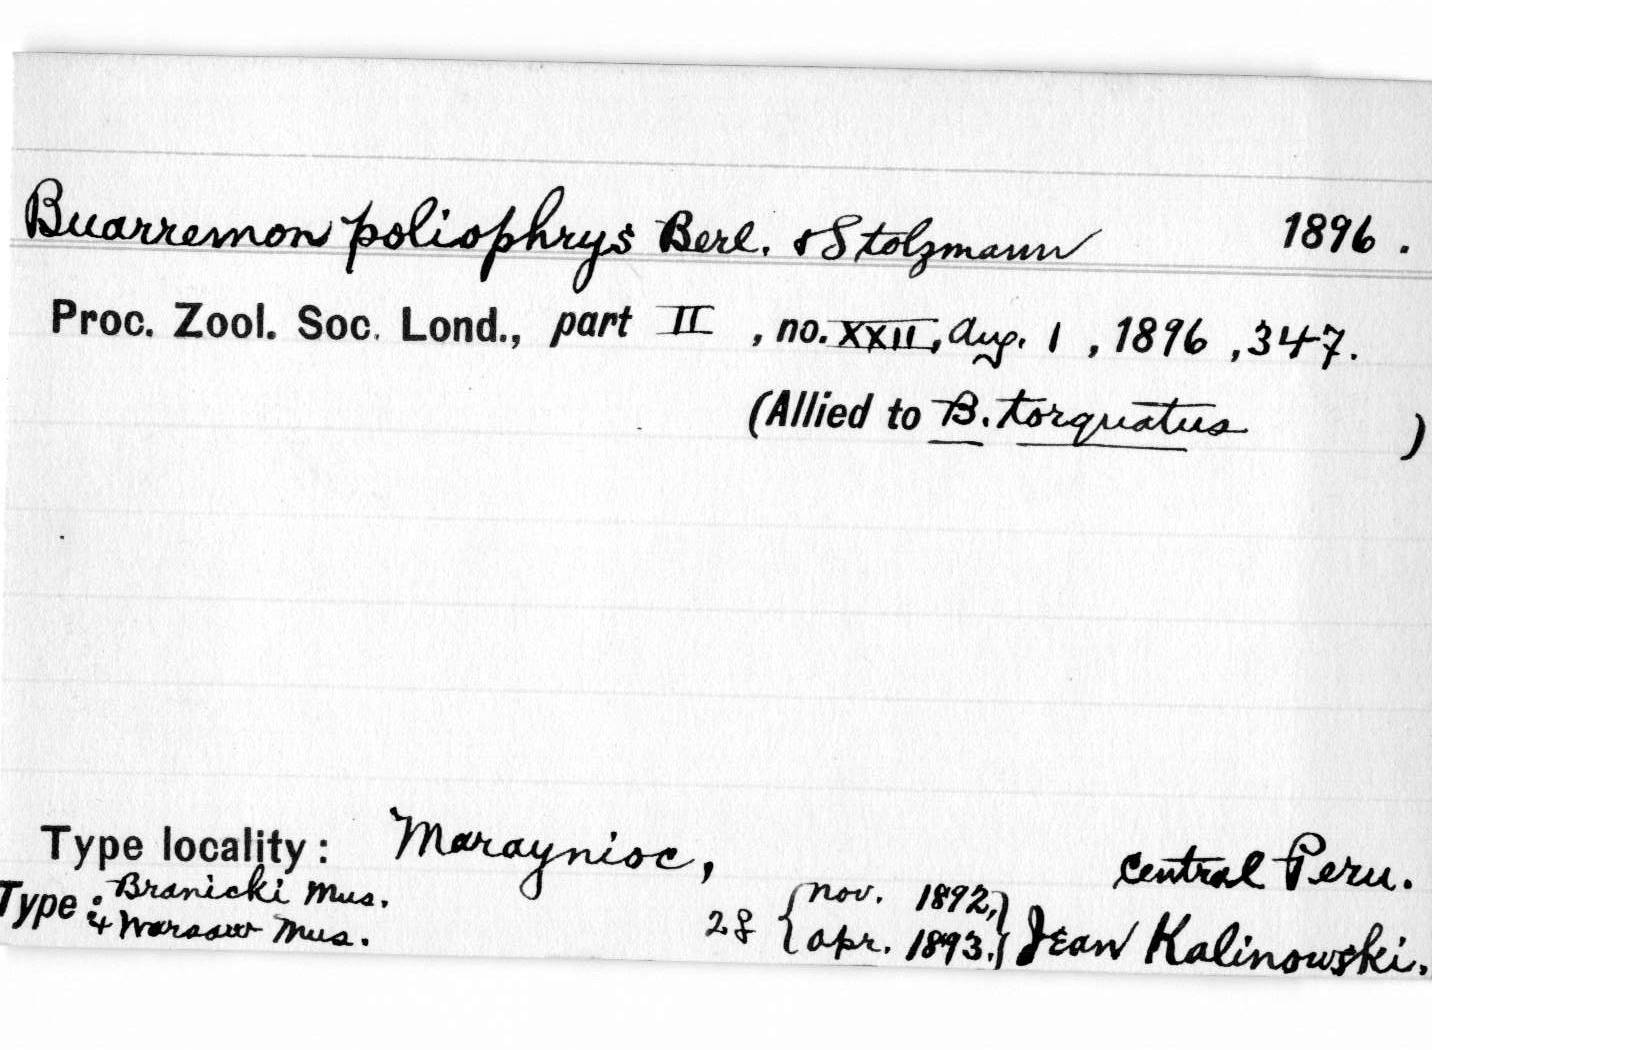 Buarremon poliophrys Berl. & Stolzmann 1896.
Proc. Zool. Soc. Lond., part II, no. XXII, Aug. 1, 1896, 347.
(Allied to B. torquatus)
Type locality: Maraynioc, Central Peru.
Type: Branicki Mus. & Warsaw Mus.
2 ♀ { Nov. 1892, Apr. 1893. } Jean Kalinowski.